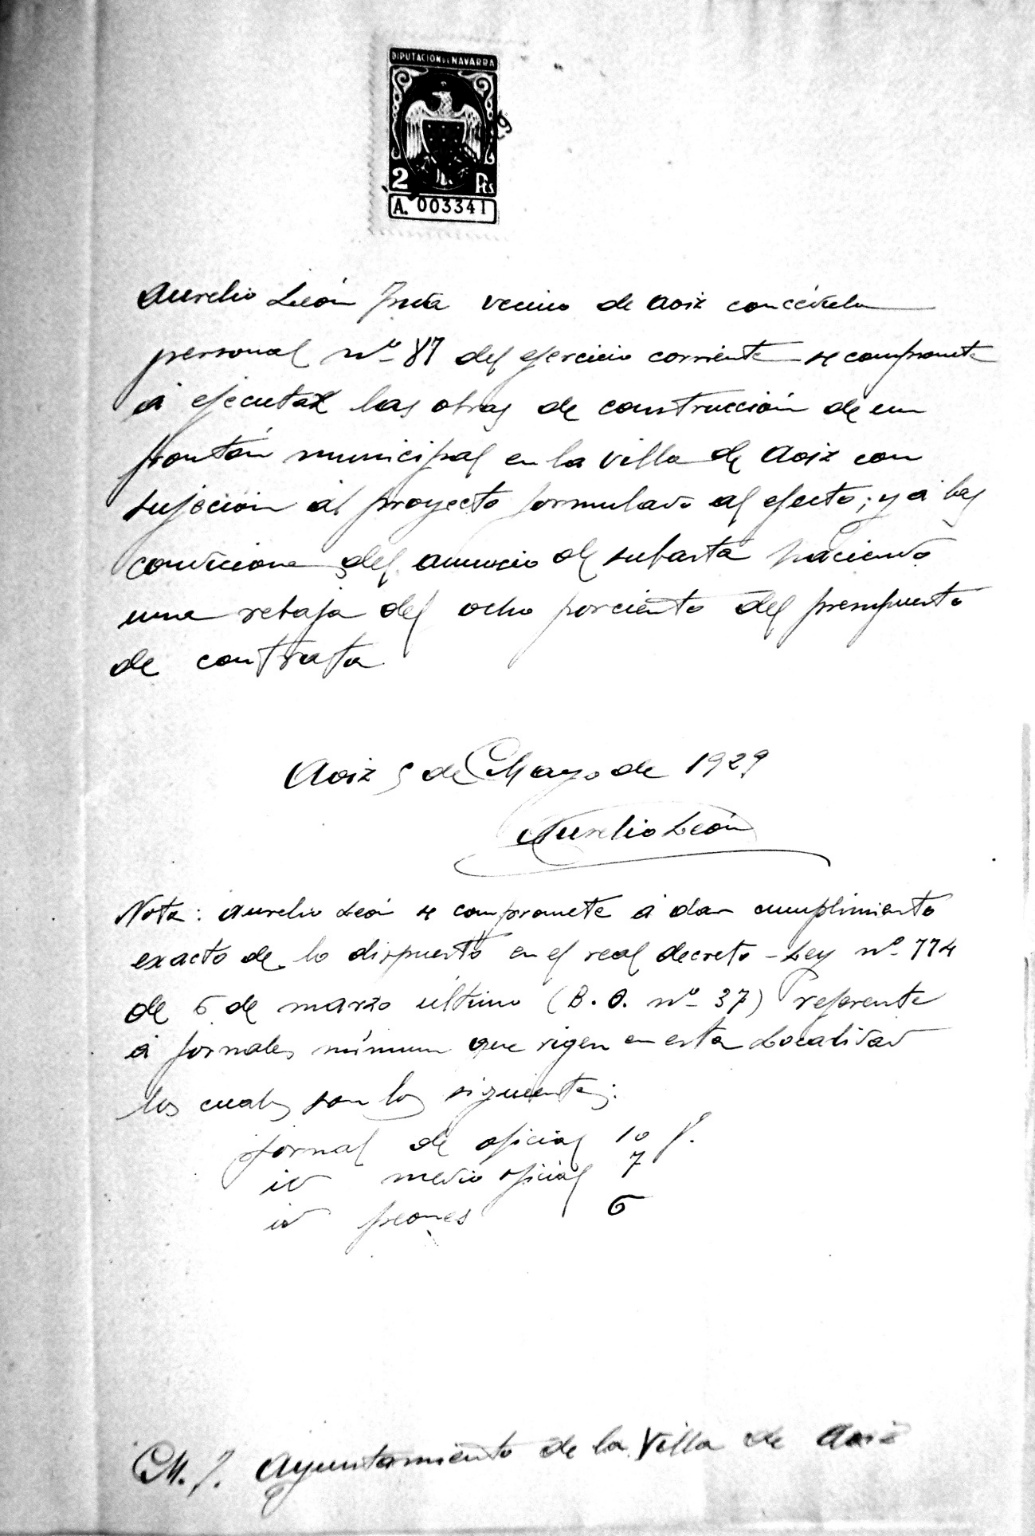 DIPUTACION DE NAVARRA
2 Pts
A. 003341
Aurelio León vecino de Aoiz con cédula
personal nº 87 del ejercicio corriente se compromete
á ejecutar las obras de construcción de un
frontón municipal en la villa de Aoiz con
sujeción al proyecto formulado al efecto; y á las
condicione del anuncio de subasta haciendo
una rebaja del ocho porciento del presupuesto
de contrata
Aoiz 5 de Mayo de 1929
Aurelio León
Nota: Aurelio León se compromete á dar cumplimiento
exacto de lo dispuesto en el real decreto-Ley nº 774
de 6 de marzo último (B. O. nº 37) referente
á jornales mínimum que rigen en esta Localidad
los cuales son los siguientes:
Jornal de oficial 10 p.
id medio oficial 7
id peones 6
M. J. Ayuntamiento de la Villa de Aoiz